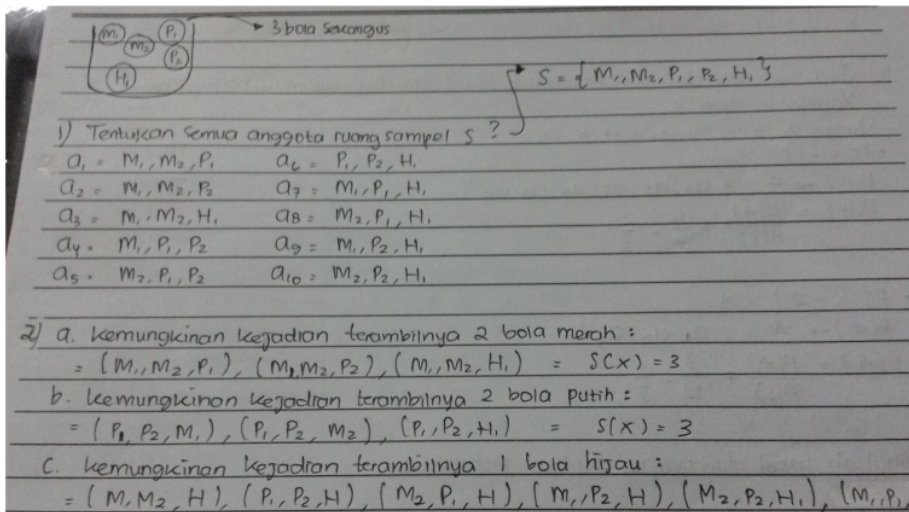 M₁ P₁ → 3 bola Sekaligus
M₂ P₂
H₁
S = { M₁, M₂, P₁, P₂, H₁ }
1) Tentukan Semua anggota ruang sampel S ?
a₁ = M₁, M₂, P₁ a₆ = P₁, P₂, H₁
a₂ = M₁, M₂, P₂ a₇ = M₁, P₁, H₁
a₃ = M₁, M₂, H₁ a₈ = M₂, P₁, H₁
a₄ = M₁, P₁, P₂ a₉ = M₁, P₂, H₁
a₅ = M₂, P₁, P₂ a₁₀ = M₂, P₂, H₁
2) a. kemungkinan kejadian terambilnya 2 bola merah :
= (M₁, M₂, P₁), (M₁, M₂, P₂), (M₁, M₂, H₁) = S(x) = 3
b. kemungkinan kejadian terambilnya 2 bola putih :
= (P₁, P₂, M₁), (P₁, P₂, M₂), (P₁, P₂, H₁) = S(x) = 3
c. kemungkinan kejadian terambilnya 1 bola hijau :
= (M, M₂, H), (P₁, P₂, H), (M₂, P₁, H), (M₁, P₂, H), (M₂, P₂, H₁), (M₁, P₁,